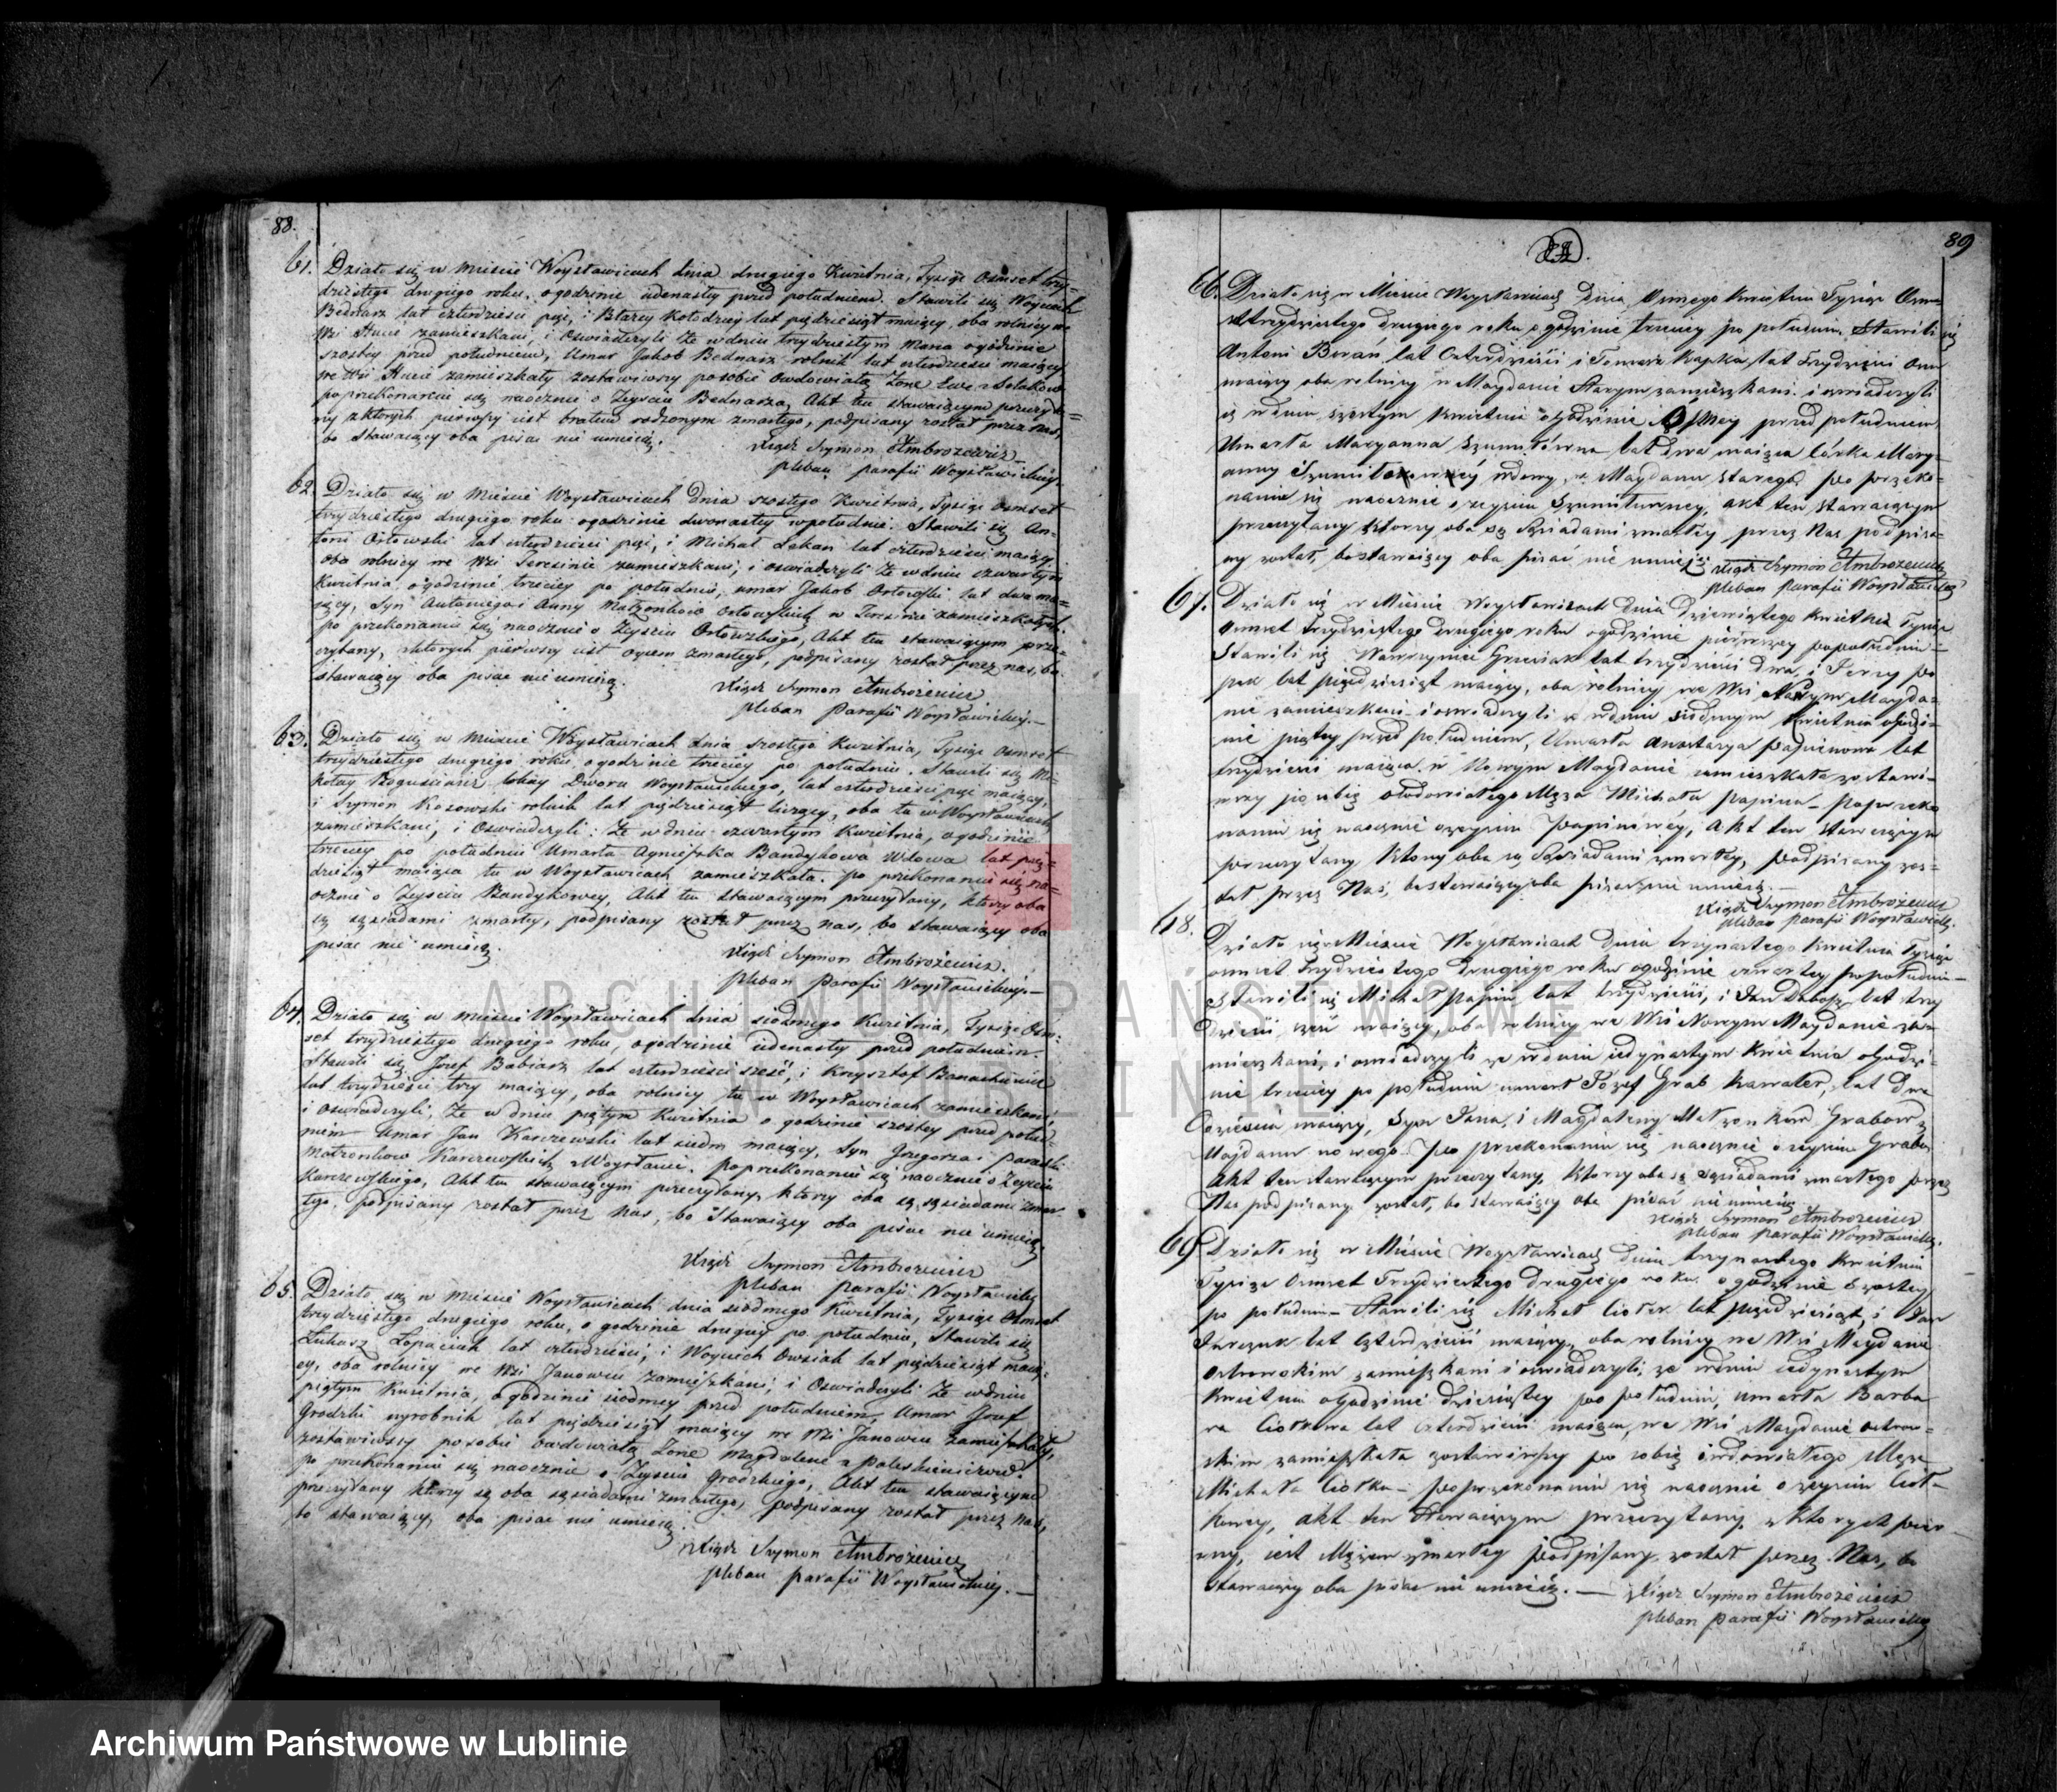 88.
61. Działo się w Mieście Woysławicach dnia drugiego Kwietnia, Tysiąc Osmset trzy-
dziestego drugiego roku, o godzinie iedenastey przed południem. Stawili się Woyciech
Bednarz lat czterdzieści pięć, i Błażey Kołodziey lat pięćdziesiąt maiący, oba rolnicy we
Wsi Hucie zamieszkani, i Oswiadczyli że w dniu trzydziestym Marca o godzinie
szostey przed południem, Umar Jakob Bednarz rolnik lat czterdzieści maiący
we Wsi Hucie zamieszkały zostawiwszy po sobie Owdowiałą Żonę Ewę
po przekonaniu się naocznie o Zeyściu Bednarza, Akt ten stawaiącym przeczyta-
ny z ktorych pierwszy iest bratem rodzonym zmarłego, podpisany został przez nas,
bo Stawaiący oba pisać nie umieią.
Xiądz Szymon Ambrożewicz
pleban parafii Woysławickiey
62. Działo się w Mieście Woysławicach dnia szostego Kwietnia, Tysiąc Osmset
trzydziestego drugiego roku o godzinie dwonastey w południe. Stawili się An-
toni Orłowski lat czterdzieści pięć, i Michał Lekan lat czterdzieści maiący
oba rolnicy we Wsi Teresinie zamieszkani, i oswiadczyli że w dniu czwartym
Kwietnia o godzinie trzeciey po południu, umar Jakob Orłowski lat dwa ma-
iący, Syn Antoniego i Anny Małżonków Orłowskich w Teresinie zamieszkałych.
po przekonaniu się naocznie o Zeyściu Orłowskiego, Akt ten stawaiącym prze-
czytany, z ktorych pierwszy iest oycem zmarłego, podpisany został przez nas, bo
stawaiący oba pisać nie umieią.
Xiądz Szymon Ambrożewicz
pleban Parafii Woysławickiey.—
63. Działo się w Mieście Woysławicach dnia szostego Kwietnia, Tysiąc Osmset
trzydziestego drugiego roku, o godzinie trzeciey po południu. Stawili się Mi-
kołay Bogusiewicz lokay Dworu Woysławskiego, lat czterdzieści pięć maiący,
i Szymon Kozowski rolnik lat pięćdziesiąt liczący, oba tu w Woysławicach
zamieszkani, i Oswiadczyli: Że w dniu czwartym Kwietnia, o godzinie
trzeciey po południu Umarła Agnieszka Bandykowa Wdowa lat pięć-
dziesiąt maiąca tu w Woysławicach zamieszkała. po przekonaniu się na-
ocznie o Zeyściu Bandykowey, Akt ten stawaiącym przeczytany, ktorzy oba
są sąsiadami zmarłey, podpisany został przez nas, bo stawaiący oba
pisać nie umieią.
Xiądz Szymon Ambrożewicz.
Pleban Parafii Woysławickiey.—
64. Działo się w Mieście Woysławicach dnia siodmego Kwietnia, Tysiąc Osm-
set trzydziestego drugiego roku, o godzinie iedenastey przed południem.
Stawili się Jozef Babiarz lat czterdzieści sześć, i Krzysztof Banachiewicz
lat trzydzieści trzy maiący, oba rolnicy tu w Woysławicach zamieszkani,
i oswiadczyli, Że w dniu piątym Kwietnia o godzinie szostey przed połud-
niem Umar Jan Karczewski lat siedm maiący, Syn Grzegorza i Paraski
małżonkow Karczewskich z Woysławic. Po przekonaniu się naocznie o Zeyściu
Karczewskiego, Akt ten stawaiącym przeczytany, ktorzy oba są sąsiadami zmar-
łego, podpisany został przez Nas, bo Stawaiący oba pisać nie umieią.
Xiądz Szymon Ambrożewicz
pleban parafii Woysławickiey
65. Działo się w Mieście Woysławicach dnia siodmego Kwietnia, Tysiąc Osmset
trzydziestego drugiego roku, o godzinie drugiey po południu, Stawili się
Łukasz Łopaciuk lat czterdzieści, i Woyciech Owsiak lat pięćdziesiąt maią-
cy, oba rolnicy we Wsi Janowcu zamieszkani, i Oswiadczyli Że w dniu
piątym Kwietnia, o godzinie siodmey przed południem, Umar Jozef
Grodzki wyrobnik lat pięćdziesiąt maiący we Wsi Janowcu zamieszkały,
zostawiwszy po sobie owdowiałą Żonę Magdalenę z
po przekonaniu się naocznie o Zeyściu Grodzkiego, Akt ten stawaiącym
przeczytany ktorzy są oba sąsiadami zmarłego, podpisany został przez nas,
bo stawaiący oba pisać nie umieią.
Xiądz Szymon Ambrożewicz
pleban parafii Woysławickiey.—
89
66. Działo się w Mieście Woysławicach Dnia Osmego Kwietnia Tysiąc Osm-
set trzydziestego drugiego roku o godzinie trzeciey po południu. Stawili się
Antoni Baran lat Czterdzieści i Tomasz Kapka, lat Trzydzieści Osm
maiący oba rolnicy w Maydanie Starym zamieszkani i oswiadczyli
iż w dniu szostym kwietnia o godzinie Osmey przed południem
Umarła Maryanna Szumiłówna lat dwa maiąca Córka Mary-
anny wdowy, z Maydanu Starego, po przeko-
naniu się naocznie o zeyściu Szumiłówney, akt ten stawaiącym
przeczytany ktorzy oba są Sąsiadami zmarłey przez Nas podpisa-
ny został, bo stawaiący oba pisać nie umieią
Xiądz Szymon Ambrożewicz
pleban Parafii Woysławickiey
67. Działo się w Mieście Woysławicach dnia Dziewiątego Kwietnia Tysiąc
Osmset Trzydziestego drugiego roku o godzinie pierwszey po południu—
Stawili się Wawrzyniec lat trzydzieści dwa, i Jerzy Pa-
piń lat pięćdziesiąt maiący, oba rolnicy we Wsi Nowym Mayda-
nie zamieszkani i oswiadczyli że w dniu siodmym kwietnia o godzi-
nie piątey przed południem, Umarła Anastazya Papinowa lat
trzydzieści maiąca w Nowym Maydanie zamieszkała zostawi-
wszy po sobie owdowiałego Męża Michała Papina— Po przeko-
naniu się naocznie o zeyściu Papinowéy, Akt ten stawaiącym
przeczytany, ktorzy oba są Sąsiadami zmarłey, podpisany zos-
tał przez Nas, bo stawaiący oba pisać nie umieią.—
Xiądz Szymon Ambrożewicz
pleban parafii Woysławickiey.
68. Działo się w Mieście Woysławicach dnia trzynastego Kwietnia Tysiąc
osmset Trzydziestego Drugiego roku o godzinie czwartey po południu—
Stawili się Michał Papin, lat trzydzieści, i Jan lat trzy
dzieści maiący, oba rolnicy we Wsi Nowym Maydanie za-
mieszkani, i oswiadczyli że w dniu iedynastym Kwietnia o godzi-
nie trzeciey po południu umarł Józef Grab kawaler, lat dwa
dzieścia maiący, Syn Jana, i Magdaleny Małżonków Grabow z
Maydanu nowego. Po przekonaniu się naocznie o zeyściu Graba,
akt ten stawaiącym przeczytany, ktorzy oba są Sąsiadami zmarłego przez
Nas podpisany został, bo stawaiący oba pisać nie umieią
Xiądz Szymon Ambrożewicz
pleban parafii Woysławickiey.
69. Działo się w Mieście Woysławicach dnia trzynastego Kwietnia
Tysiąc Osmset Trzydziestego Drugiego roku o godzinie szostey
po południu— Stawili się Michał Ciołek lat pięćdziesiąt, i Jan
lat czterdzieści maiący, oba rolnicy we Wsi Maydanie
Ostrowskim zamieszkani i oswiadczyli, że w dniu iedynastym
Kwietnia o godzinie dziesiątey po południu, umarła Barba
ra Ciołkowa lat czterdzieści maiąca, we Wsi Maydanie Ostrow-
skim zamieszkała zostawiwszy po sobie owdowiałego Męża
Michała Ciołka— po przekonaniu się naocznie o zeyściu Cioł-
kowey, akt ten Stawaiącym przeczytany, z ktorych pier-
wszy, iest Mężem zmarłey podpisany został przez Nas, bo
Stawaiący oba pisać nie umieią.—
Xiądz Szymon Ambrożewicz
pleban parafii Woysławickiey
ARCHIWUM PAŃSTWOWE
W LUBLINIE
Archiwum Państwowe w Lublinie